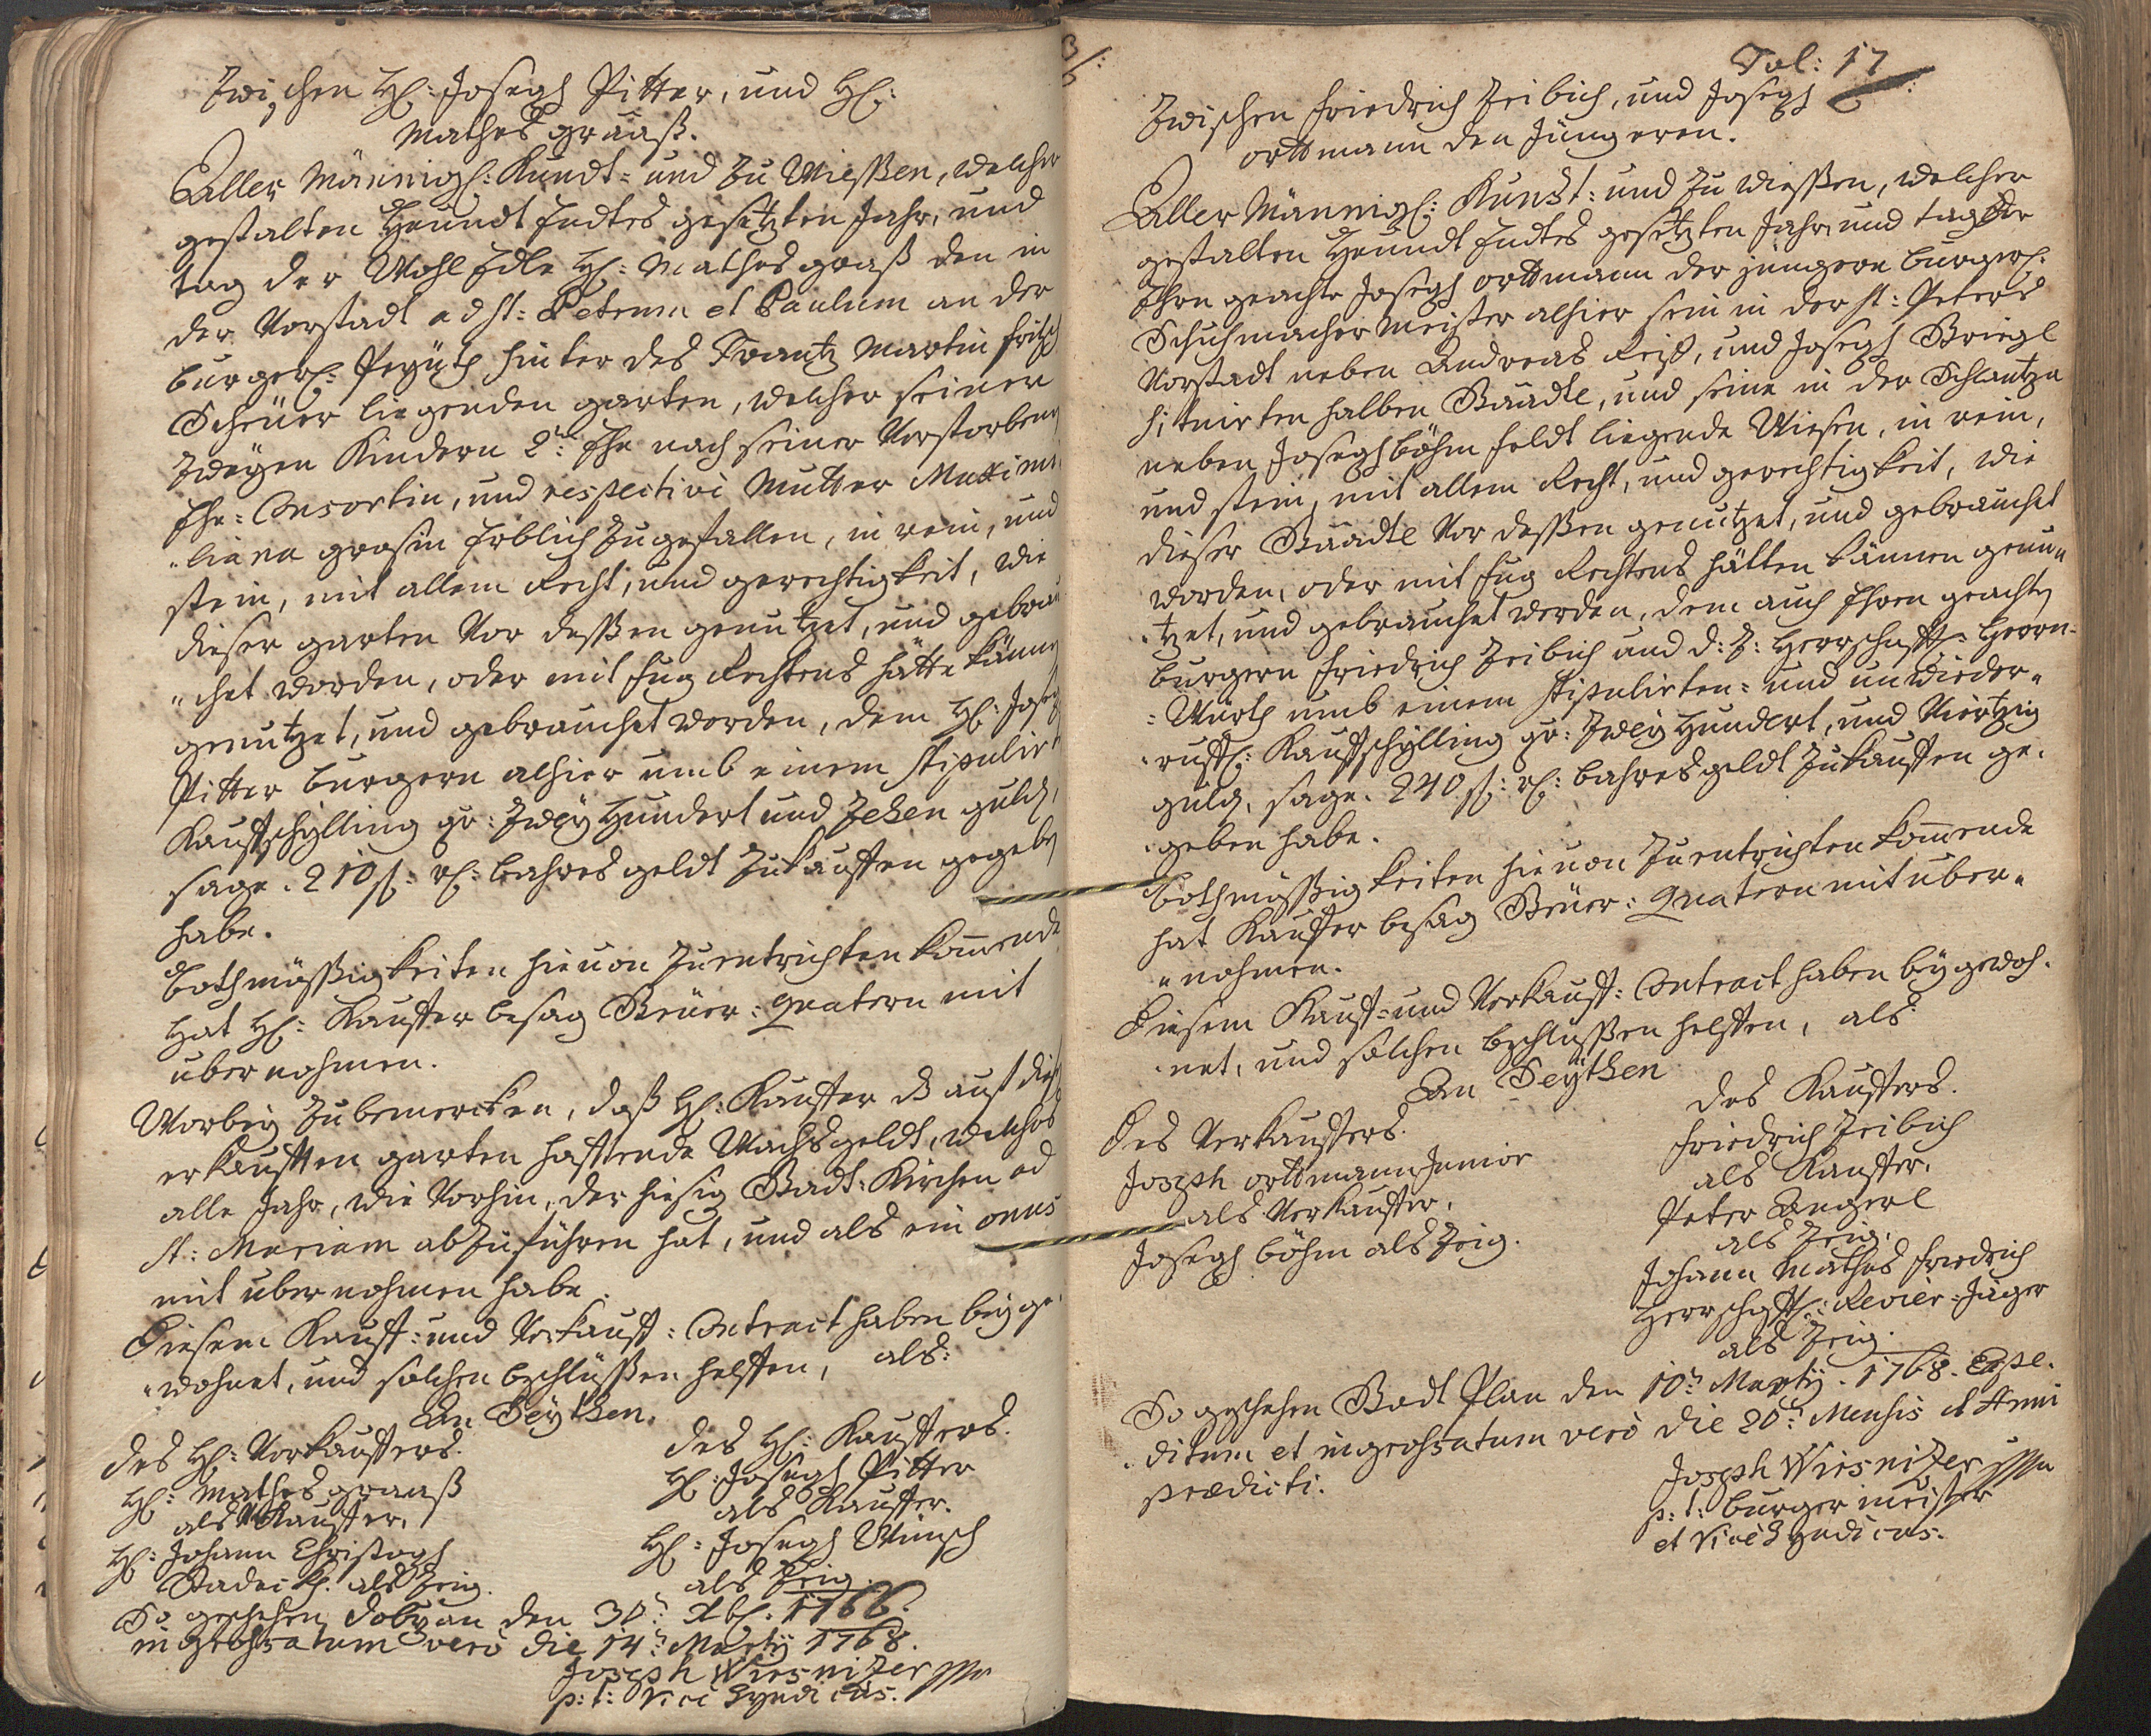 Zwischen H: Joseph Pitter, und H:
Mathes graaß.
Aller Männigl: Kundt= und zu Wießen, welcher
gestalten Heundt Endtes gesetzten Jahr, und
tag der Wohl Edle H: Mathes graß den in
der Vorstadt ad St: Petrum et Paulum an der
burgerl: hinter des Frantz Martin fritsch
Scheüer liegenden garten, welcher seinen
Zweyen Kindern 2: Ehe nach seiner Verstorbenen
Ehe=Consortin, und respective Mutter Maximi
"liana grasin Erblich zugefallen, in rein, und
stein, mit allem Recht, und gerechtigkeit, wie
dieser garten Vor deßßen genutzet, und gebrau
"chet worden, oder mit fug Rechtens hätte können
genutzet, und gebrauchet worden, dem H: Joseph
Pitter burgern alhier umb einem stipulirt
Kaufschylling per: Zwey Hundert und Zehen guld,
sage. 210 f: rh: bahres geldt zukauffen gegeben
habe.
Bothmäßigkeiten hieuon zuentrichten komende
Hat H: Kauffer besag Steüer: quatern mit
ubernohmen.
Worbey zubemercken, daß H: Kauffer auf dies
erkaufften garten hafftende Wachsgeldt, welches
alle Jahr, wie Vorhin, der hiesig Stadt: Kirchen ad
St: Mariam abzuführen hat, und als ein onus
mit ubernohmen habe.
Diesem Kauff= und Verkauff: Contract haben beyge
"wohnet, und solchen beschlüßßen helffen, als:
An Seythen.
des H: Verkauffers.
des H: Kauffers.
H: Mathes graaß
H: Joseph Pitter
als Verkauffer,
als Kauffer.
H: Johann Christoph
H: Joseph Wünsch
als Zeig.
als Zeig.
So geschehen den 30: Xbl. 1766.
ingrossatum vero die 14: Marty 1768.
Joseph Wiesnitzer mp
p: t: Vice Syndicus.
Fol: 17
Zwischen Friedrich Zeibich, und Joseph
orttmann den Jüngeren.
Aller Männigl: Kundt: und zu wießen, welcher
gestalten Heundt Endtes gesetzten Jahr, und tag der
Ehrn geachte Joseph orttmann der jüngere burgerl:
Schuhmacher Meister alhier sein in der St: Peters
Vorstadt neben Andreas Reiß, und Joseph Briegl
situirten halben Staadtl, und seine in der Schlantzn
neben Joseph böhm feldt liegende Wiesen, in rein,
und stein, mit allem Recht, und gerechtigkeit, wie
dieser Staadtl Vor deßßen genutzet, und gebrauchet
worden, oder mit fug Rechtens hätten können genu"
"tzet, und gebrauchet werden, dem auch Ehren geachten
burgern Friedrich Zeibich und d: Z: Herrschafftl: Herrn=
=Würth umb einem stipulirten= und unwieder"
"rufl: Kauffschylling per: Zwey Hundert, und Viertzig
guld, sage. 240 f: rh: bahres geldt zukauffen ge.
.geben habe.
Bothmäßigkeiten hieuon zuentrichten komende
hat Kauffer besag Steüer: quatern mit uber"
"nohmen.
Diesem Kauff= und Verkauff: Contract haben beygewoh.
.net, und solchen beschlüßßen helffen, als
An Seythen
Des Verkauffers.
des Kauffers.
Joseph orttmann Junior
Friedrich Zeibich
als Verkauffer,
als Kauffer,
Joseph böhm als Zeig.
Peter Angerl
als Zeig,
Johann Mathes Friedrich
Herrschafftl: Revier=Jäger
als Zeig.
So geschehen Stadt Plan den 10: Marty. 1768. Expe.
.ditum et ingrossatum vero die 20: Mensis et Anni
prædicti.
Joseph Wiesnitzer mp
p: t: burgermeister
et Vice Syndicus.